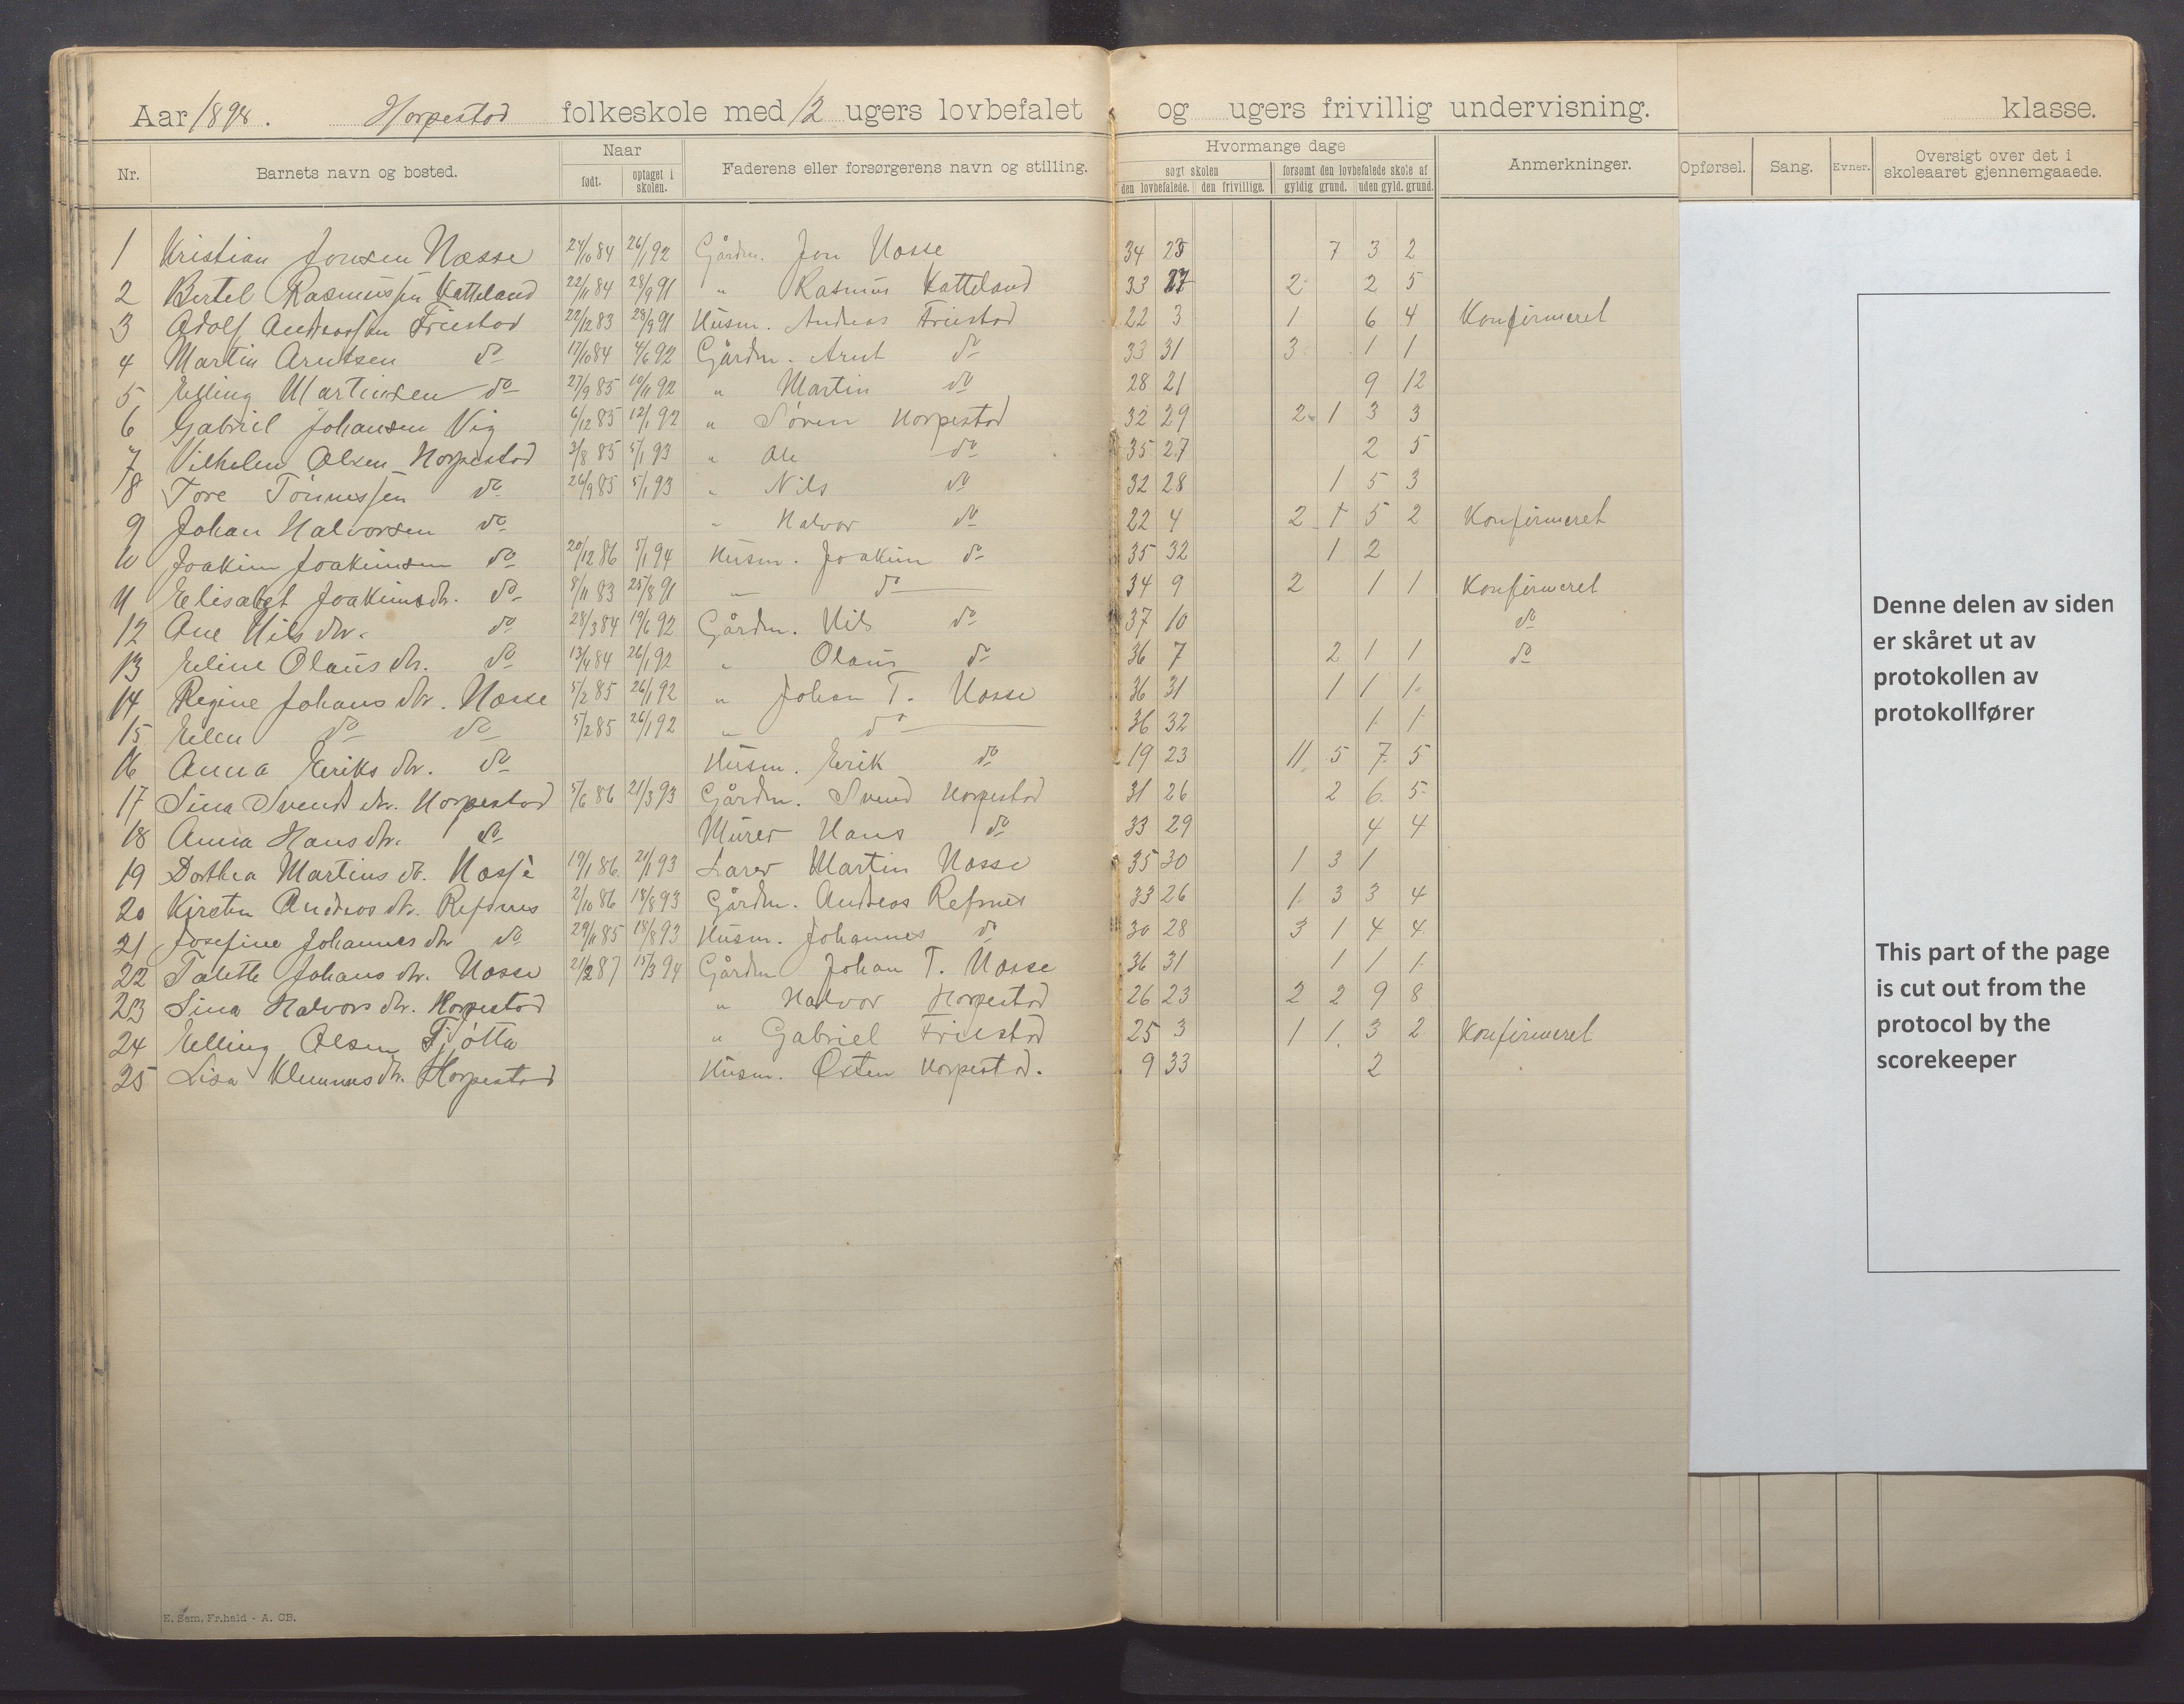 Aar 1898. Horpestad folkeskole med 12 ugers lovbefalet og ugers frivillig undervisning. klasse.
Nr. Barnets navn og bosted. Naar født. optaget i skolen. Faderens eller forsørgerens navn og stilling. Hvormange dage søgt skolen den lovbefalede. den frivillige. forsømt den lovbefalede skole af gyldig grund. uden gyld. grund. Anmerkninger. Opførsel. Sang. Evner. Oversigt over det i skoleaaret gjennemgaaede.
1 Kristian Jonsen Næsse 24/10 84 26/1 92 Gårdm. Jon Næsse 34 25 7 3 2
2 Bertel Rasmussen Katteland 22/11 84 28/9 91 " Rasmus Katteland 33 27 2 2 5
3 Adolf Andreassen Friestad 22/12 83 28/9 91 Husm. Andreas Friestad 22 3 1 6 4 Konfirmeret
4 Martin Arntsen do 17/10 84 4/6 92 Gårdm. Arnt do 33 31 3 1 1
5 Elling Martinsen do 27/9 85 10/11 92 " Martin do 28 21 9 12
6 Gabriel Johansen Vig 6/12 85 12/1 92 " Søren Horpestad 32 29 2 1 3 3
7 Vilhelm Olsen Horpestad 3/8 85 5/1 93 " Ole do 35 27 2 5
8 Tore Tönnessen do 26/9 85 5/1 93 " Nils do 32 28 1 5 3
9 Johan Halvorsen do " Halvor do 22 4 2 1 5 2 Konfirmeret
10 Joakim Joakimsen do 20/12 86 5/1 94 Husm. Joakim do 35 32 1 2
11 Elisabet Joakimsdr. do 8/11 83 25/8 91 " do 34 9 2 1 1 Konfirmeret
12 Ane Nilsdr. do 28/3 84 19/6 92 Gårdm. Nils do 37 10 do
13 Eline Olausdr. do 13/4 84 26/1 92 " Olaus do 36 7 2 1 1 do
14 Regine Johansdr. Næsse 5/2 85 26/1 92 " Johan T. Næsse 36 31 1 1 1
15 Elen do do 5/2 85 26/1 92 " do 36 32 1 1
16 Anna Eriksdr. do Husm. Erik do 19 23 11 5 7 5
17 Sina Svendsdr. Horpestad 5/6 86 21/3 93 Gårdm. Svend Horpestad 31 26 2 6 5
18 Anna Hansdr. do Murer Hans do 33 29 4 4
19 Dorthea Martinsdr. Næsse 19/1 86 21/1 93 Lærer Martin Næsse 35 30 1 3 1
20 Kirsten Andreasdr. Refsnes 2/10 86 18/8 93 Gårdm. Andreas Refsnes 33 26 1 3 3 4
21 Josefine Johannesdr do 29/11 85 18/8 93 Husm. Johannes do 30 28 3 1 4 4
22 Talette Johansdr. Næsse 21/2 87 15/3 94 Gårdm Johan T. Næsse 36 31 1 1 1
23 Sina Halvorsdr. Horpestad " Halvor Horpestad 26 23 2 2 9 8
24 Elling Olsen Tjøtta " Gabriel Friestad 25 3 1 1 3 2 Konfirmeret
25 Lisa Klemmsdr. Horpestad Husm. Østen Horpestad. 9 33 2
Denne delen av siden
er skåret ut av
protokollen av
protokollfører
This part of the page
is cut out from the
protocol by the
scorekeeper
E. Sem, Fr.hald - A. CB.